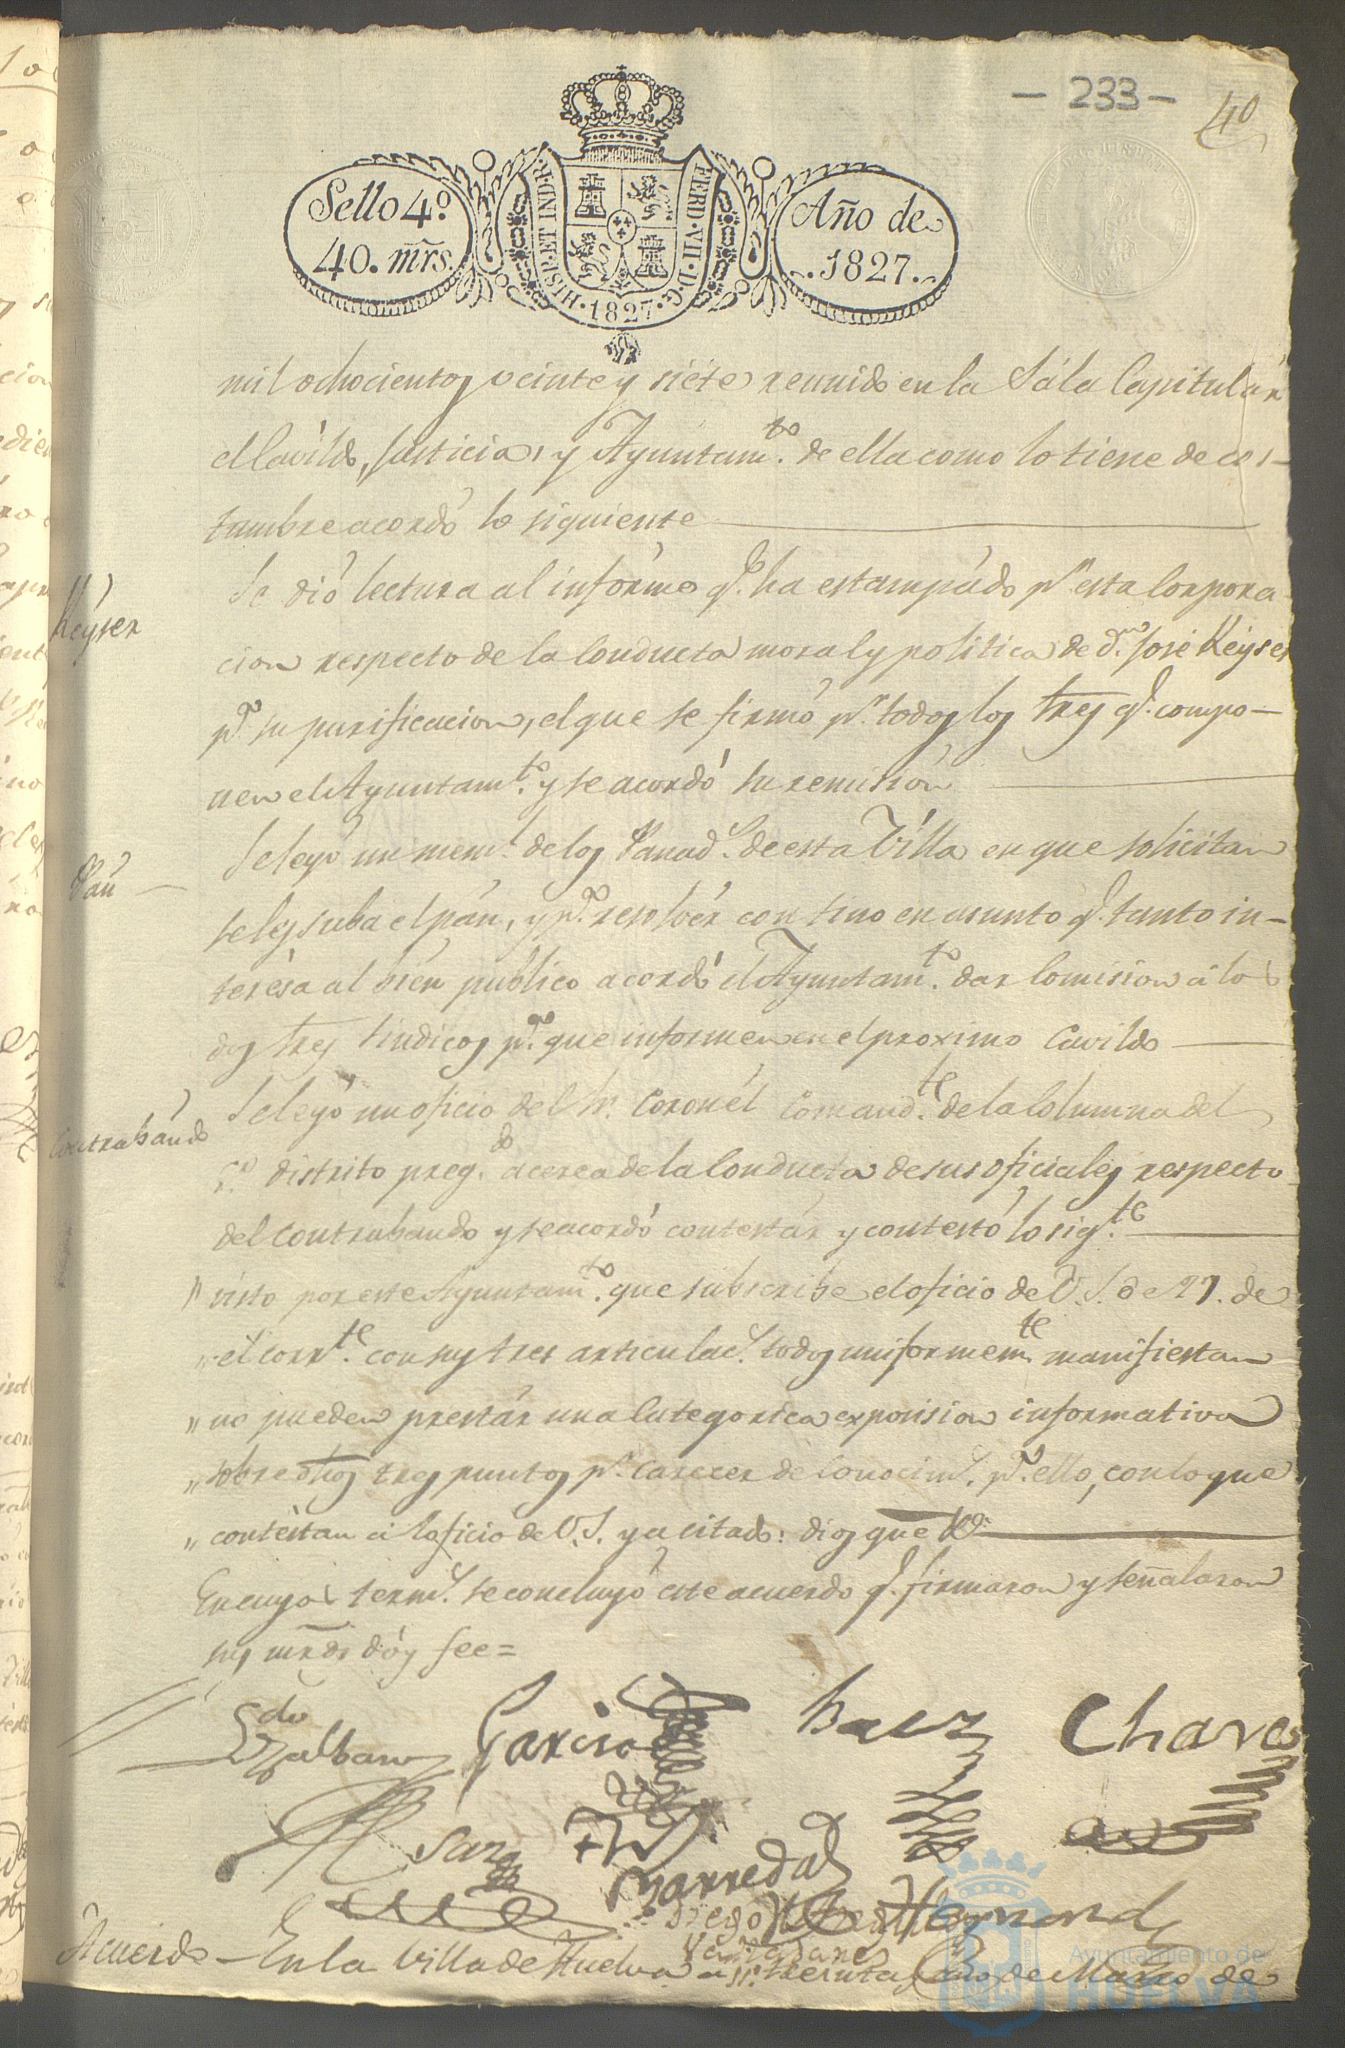 - 233 -
40
Sello 4º
40. mrs.
HISP. ET IND. R.
FERD. VII. D. G.
1827.
Año de
1827.
mil ochocientos veinte y siéte reunido en la Sála Capitulár
el Cavildo, Justicia, y Ayuntamto. de ella como lo tiene de cos-
tumbre acordó lo siguiente
Keyser
Se dió lectura al informe qe. ha estampádo pr. esta Corpora-
cion respecto de la Conducta moral y politica de Dn. José Keyser
pa. su purificacion, el que se firmó pr. todos los Sres. qe. compo-
nen el Ayuntamto. y se acordó su remisión
Pan
Se leyó un meml. de los Panads. de esta Villa en que solicitan
se les suba el pán, y pa. resolvér con tino en asunto qe. tanto in-
terésa al bién público acordó el Ayuntamto. dar Comision á lo
dos Sres. Sindicos pa. que informen en el proximo Cavildo
Contrabándo
Se leyó un oficio del Sr. Coronél Comandte. de la Columna del
distrito pregdo. acerca de la Conducta de sus oficiales respecto
del Contrabando y se acordó contestár y contestó lo sigte.
" visto por este Ayuntamto. que subscribe el oficio de V.S. de 27. de
" el corrte. con sus tres articulacs. todos uniformemte. manifiestan
" no pueden prestár una Categorica exposision informativa
" sobre dhos. tres puntos pr. Carecer de Conocims. pa. ello, con lo que
" contéstan al oficio de V.S. ya citado: dios que &a.
En cuyos terms. se concluyó este acuerdo qe. firmaron y señalaron
sus mrds. dóy fee=
Garcia
Baez
Chaves
Barreda
Diego
Hernand
Acuerdo - En la Villa de Huelva á treinta y uno de Marzo de
Ayuntamiento de
HUELVA